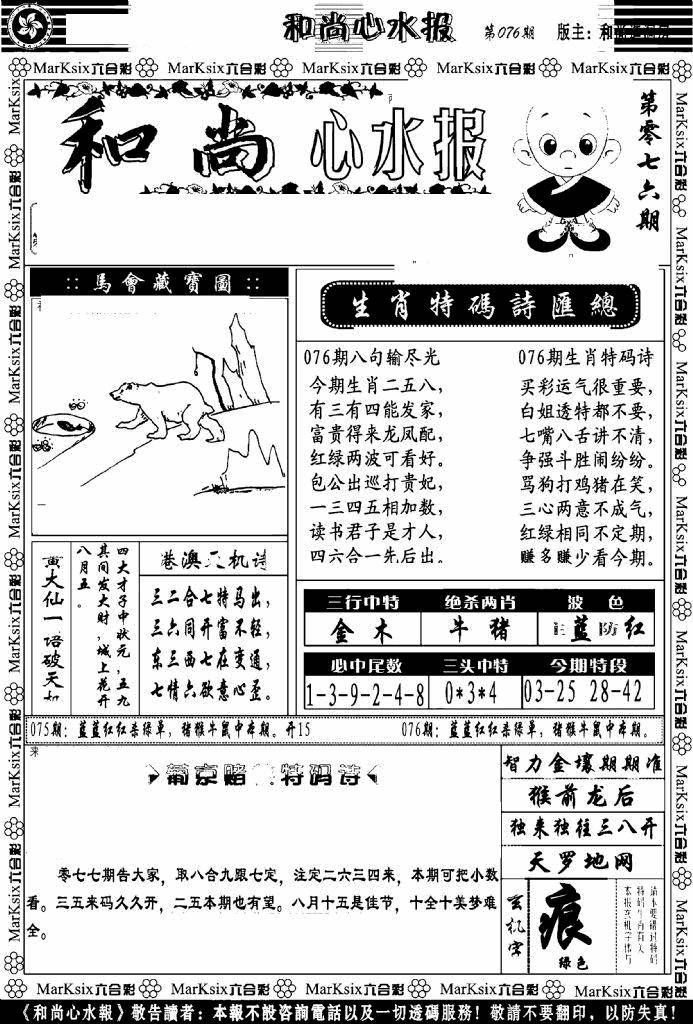 和尚心水报 第076期 版主：和
MarKsix六合彩 MarKsix六合彩 MarKsix六合彩 MarKsix六合彩 MarKsix六合彩
和尚 心水报
第零七六期
::馬會藏寶圖::
生肖特碼詩匯總
076期八句输尽光
今期生肖二五八，
有三有四能发家，
富贵得来龙凤配，
红绿两波可看好。
包公出巡打贵妃，
一三四五相加数，
读书君子是才人，
四六合一先后出。
076期生肖特码诗
买彩运气很重要，
白姐透特都不要，
七嘴八舌讲不清，
争强斗胜闹纷纷。
骂狗打鸡猪在笑，
三心两意不成气，
红绿相同不定期，
赚多赚少看今期。
黄大仙一语破天
四大才子中状元，五九
其间发大财，城上花开
八月五。
港澳天机诗
三二合七特马出，
三六同开富不轻，
东三西七在变通，
七情六欲意心歪。
三行中特 绝杀两肖 波色
金木 牛猪 主蓝防红
必中尾数 三头中特 今期特段
1-3-9-2-4-8 0*3*4 03-25 28-42
075期：蓝蓝红红杀绿单，猪猴牛鼠中本期。开15
076期：蓝蓝红红杀绿单，猪猴牛鼠中本期。
来
葡京赌 特码诗
零七七期告大家，取八合九跟七定，注定二六三四来，本期可把小数
看。三五来码久久开，二五本期也有望。八月十五是佳节，十全十美梦难
全。
智力金壤期期准
猴前龙后
独来独往三八开
天罗地网
玄机字
痕
绿色
MarKsix六合彩 MarKsix六合彩 MarKsix六合彩 MarKsix六合彩 MarKsix六合彩
《和尚心水報》敬告讀者：本報不設咨詢電話以及一切透碼服務！敬請不要翻印，以防失真！